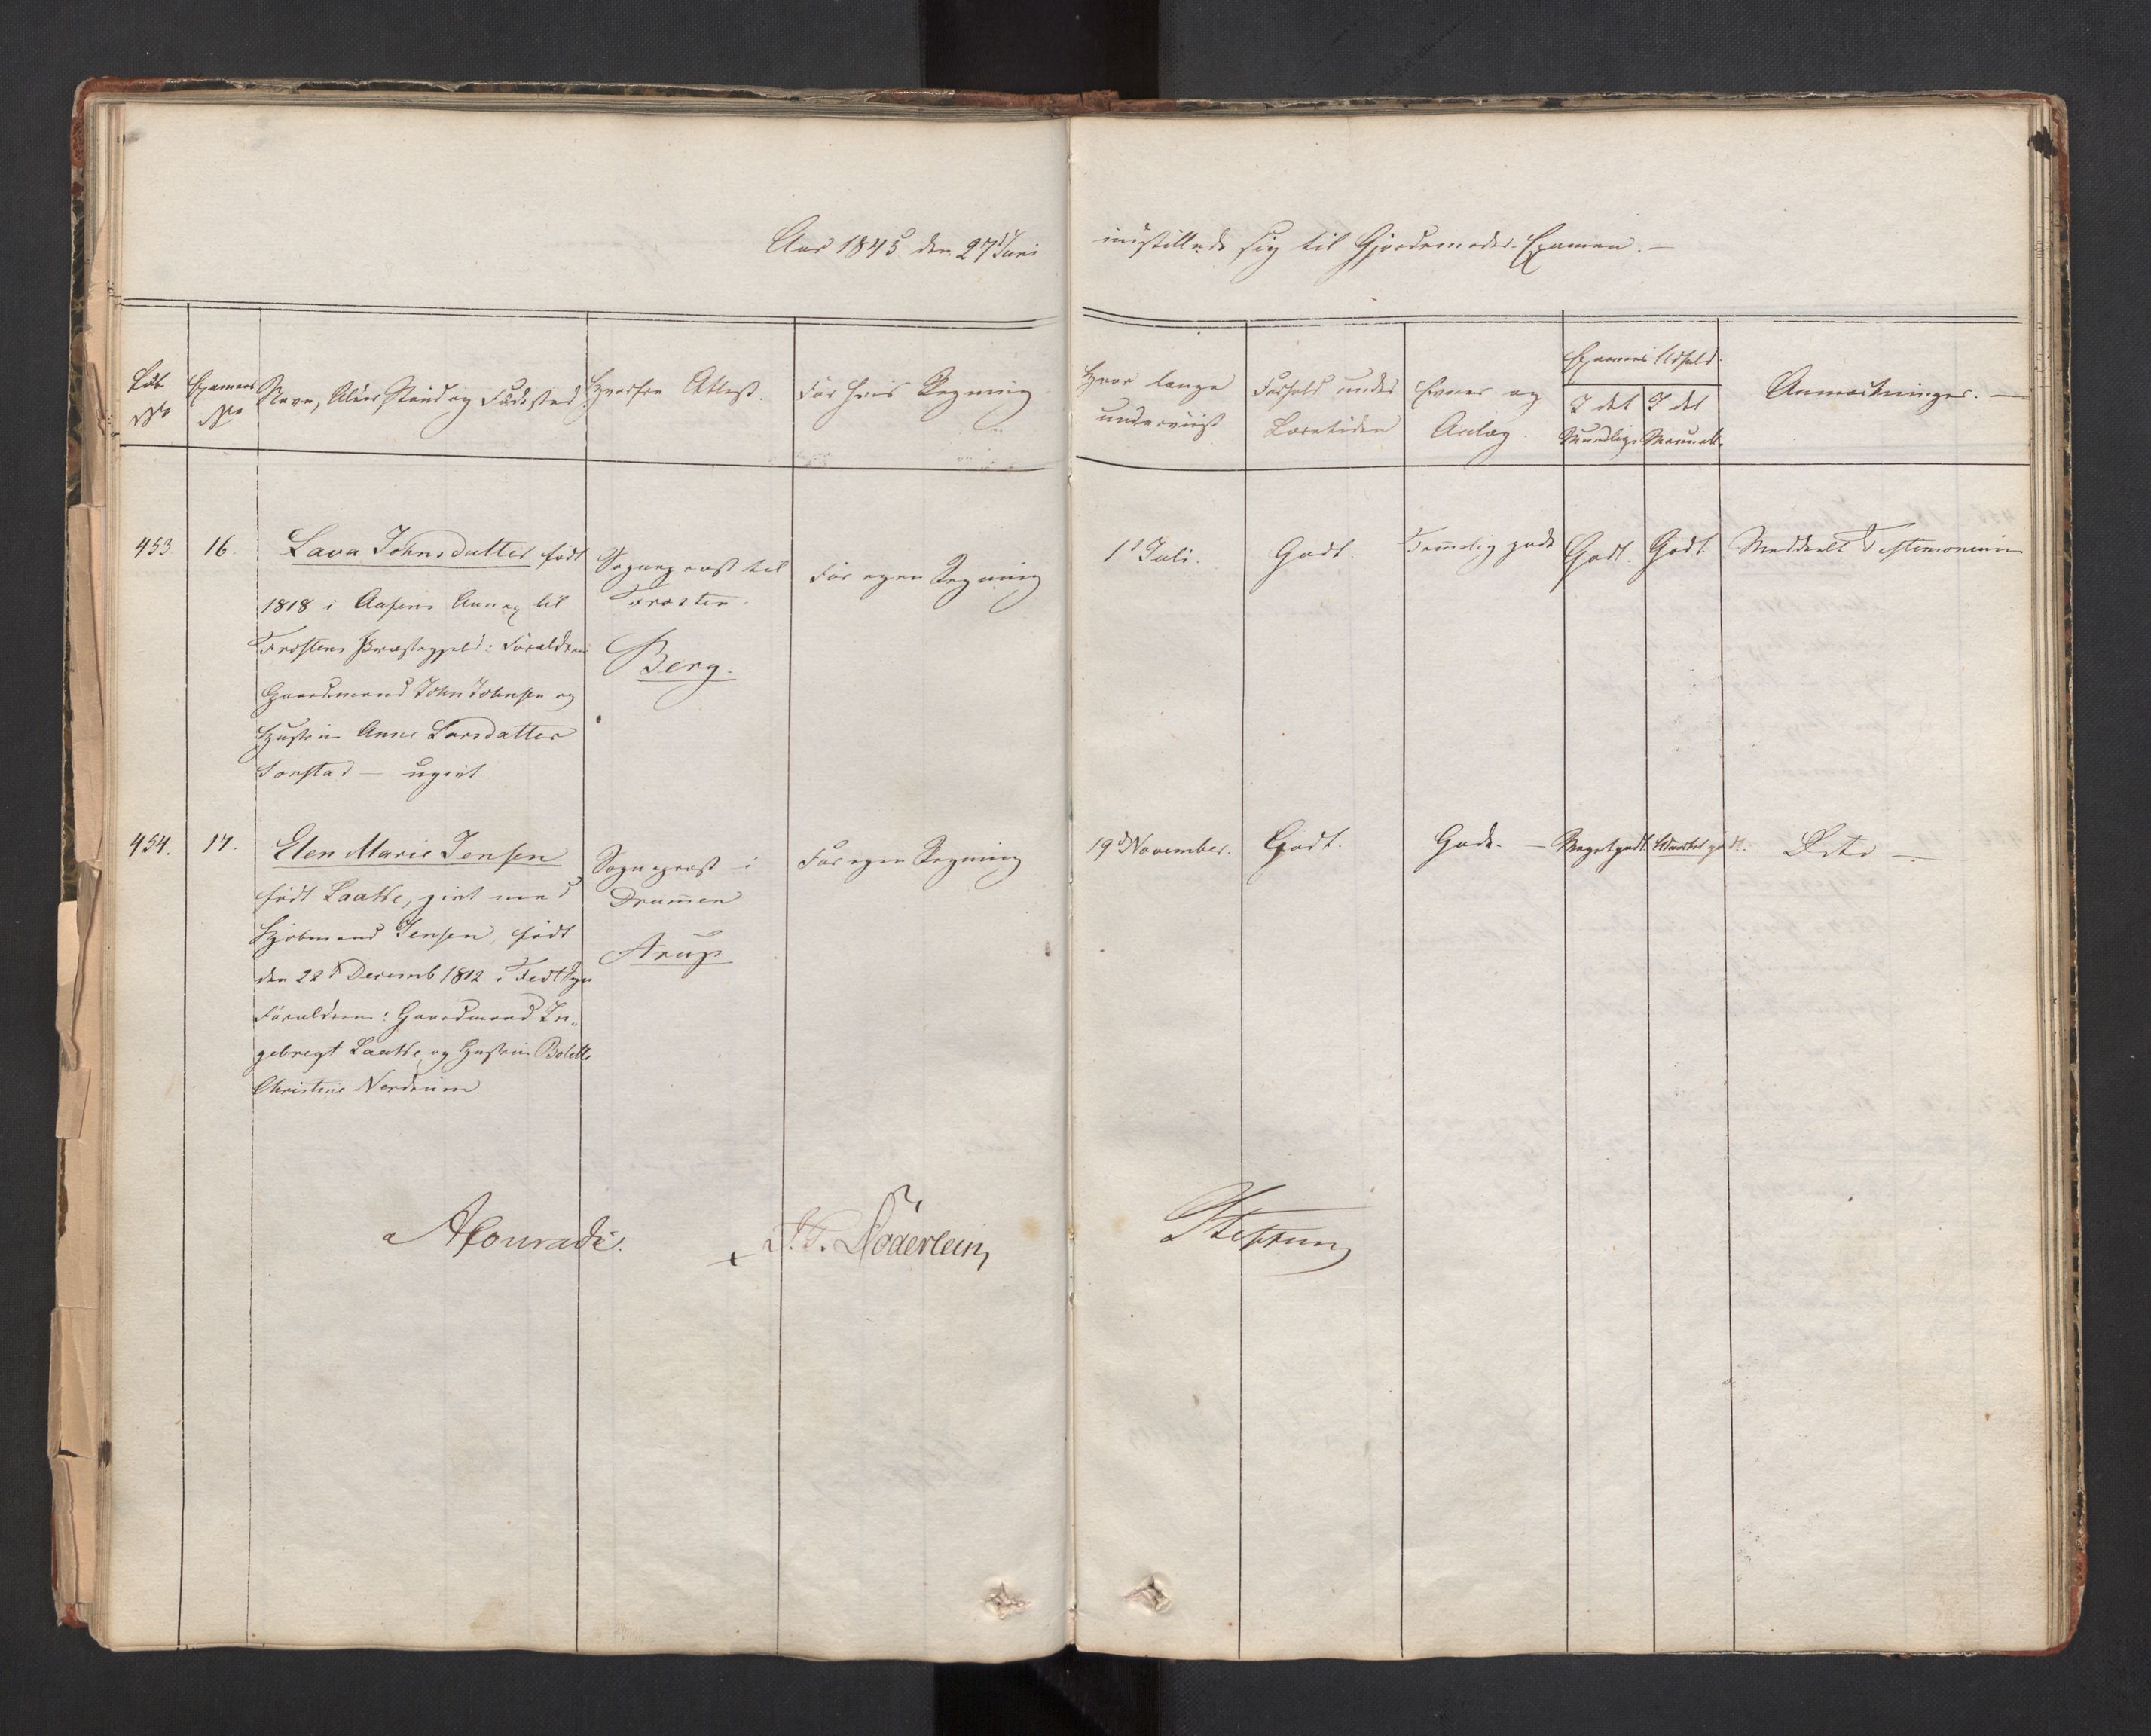 Aar 1845 den 27d Juni indstillede sig til Gjordemoder-Examen. —
Løb No
Examens No
Navn, Alder, Stand og Fødested
Hvorfra Attest.
For hvis Regning
Hvor længe underviist
Forhold under Læretiden
Evner og Anlæg.
Examens Udfald.
I det Mundlige
I det Manuelle
Anmærkninger. —
453
16.
Lava Johnsdatter født
1818 i Aasens Annex til
Frostens Præstegjeld: Forældrene
Gaardmand John Johnsen og
Hustrue Anne Larsdatter
— ugivt
Sogneprest til
Frosten.
Berg.
For egen Regning
1d Juli.
Godt.
Temmelig gode
Godt.
Godt.
Meddeelt Testimonium
454.
17.
Elen Marie Jensen
født Laake, givt med
Kjøbmand Jensen, født
den 22d Decemb 1812 i
Forældrene: Gaardmand In-
gebregt Laake og Hustrue Bolette
Christine Nordrum
Sogneprest i
Drammen
Arup
For egen Regning
19d November.
Godt.
Gode. —
Meget godt
Udmærket godt.
Dito —
A Conradi.
J. C. Döderlein
Steffens